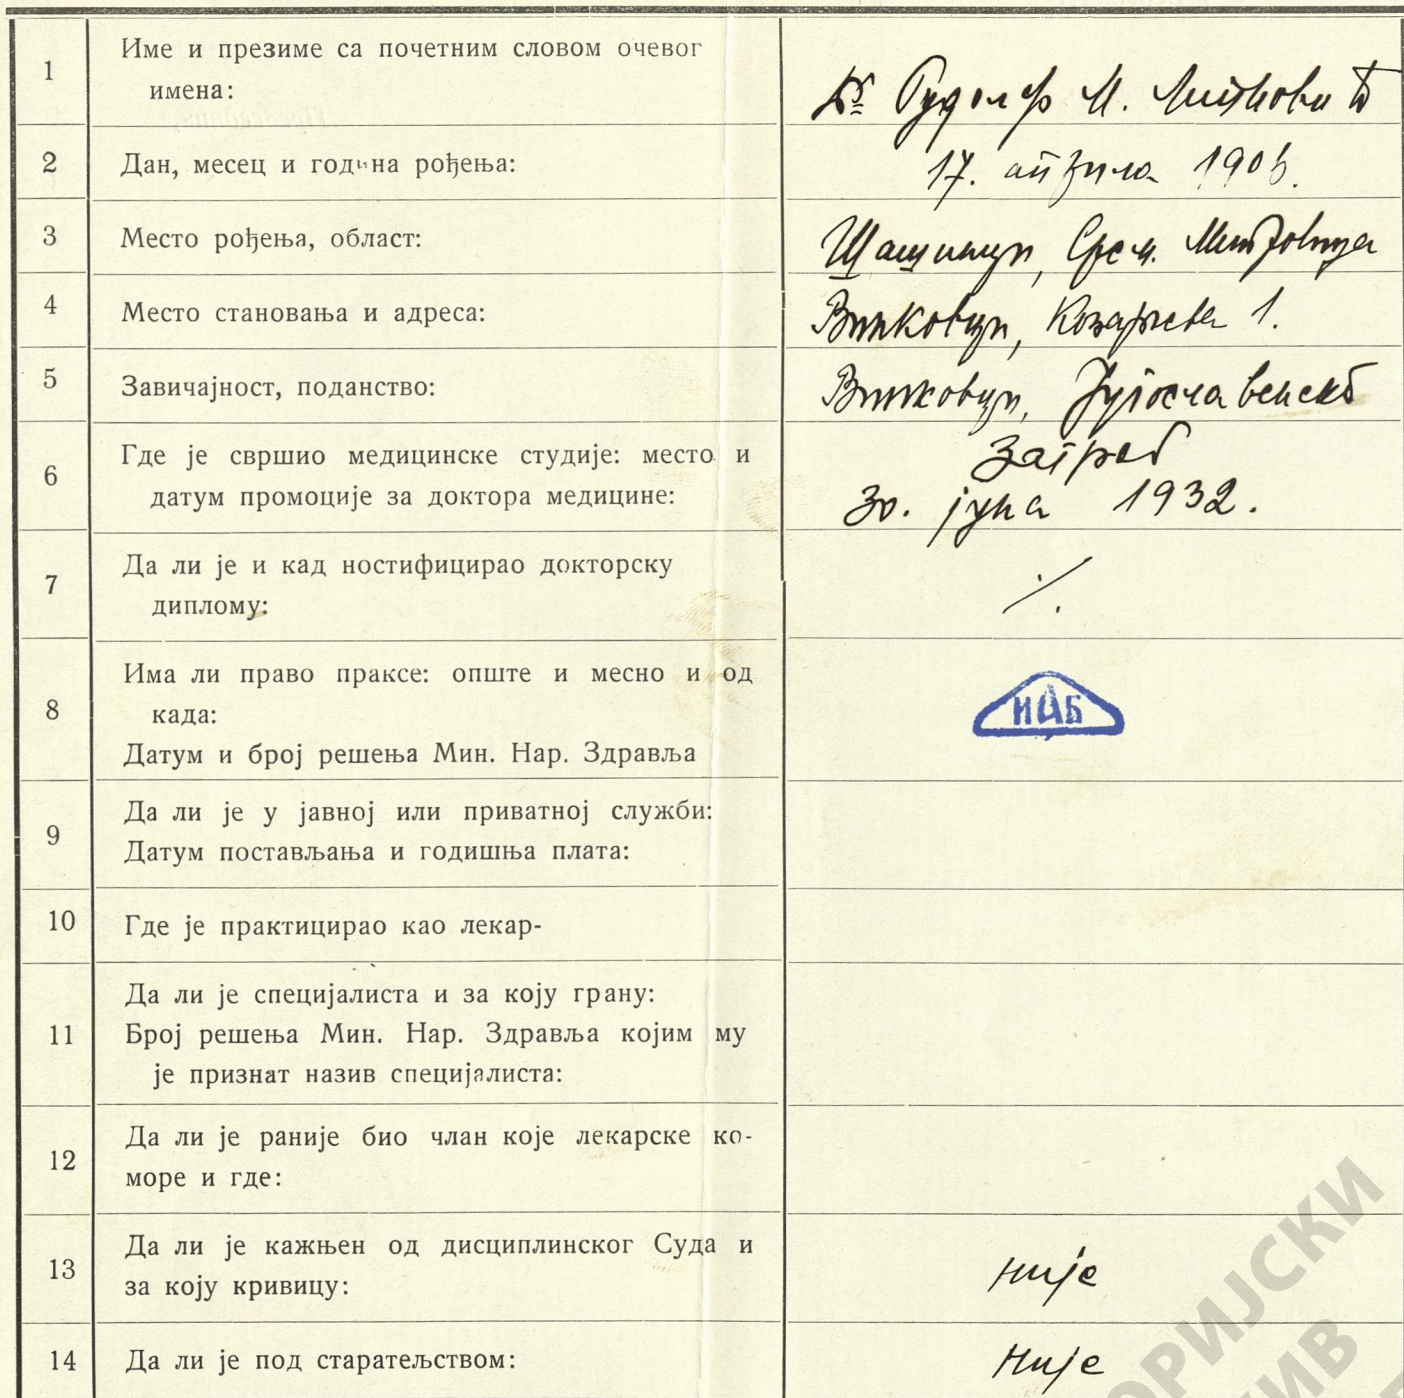 1 Име и презиме са почетним словом очевог
имена:
Др Рудолф М. Литковић
2 Дан, месец и година рођења:
17. априла 190
3 Место рођења, област:
Шашинци, Срем. Митровица
4 Место становања и адреса:
Винковци, Козарчева 1.
5 Завичајност, поданство:
Винковци, Југославенско
6 Где је свршио медицинске студије: место и
датум промоције за доктора медицине:
Загреб
30. јуна 1932.
7 Да ли је и кад ностифицирао докторску
диплому:
./.
8 Има ли право праксе: опште и месно и од
када:
Датум и број решења Мин. Нар. Здравља
ИАБ
9 Да ли је у јавној или приватној служби:
Датум постављања и годишња плата:
10 Где је практицирао као лекар-
11 Да ли је специјалиста и за коју грану:
Број решења Мин. Нар. Здравља којим му
је признат назив специјалиста:
12 Да ли је раније био члан које лекарске ко-
море и где:
13 Да ли је кажњен од дисциплинског Суда и
за коју кривицу:
није
14 Да ли је под старатељством:
није
ОРИЈСКИ
ИВ